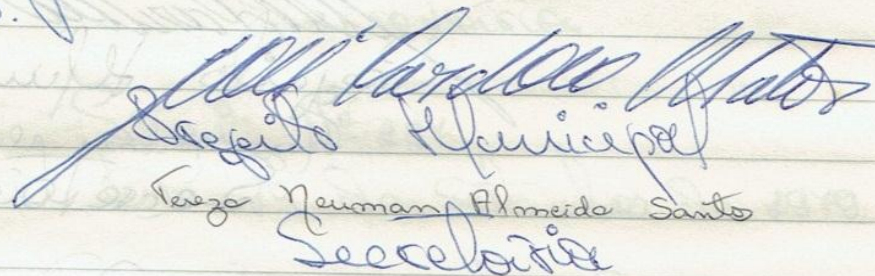 José Cardoso Matos
Prefeito Municipal
Tereza Neuman Almeida Santos
Secretária